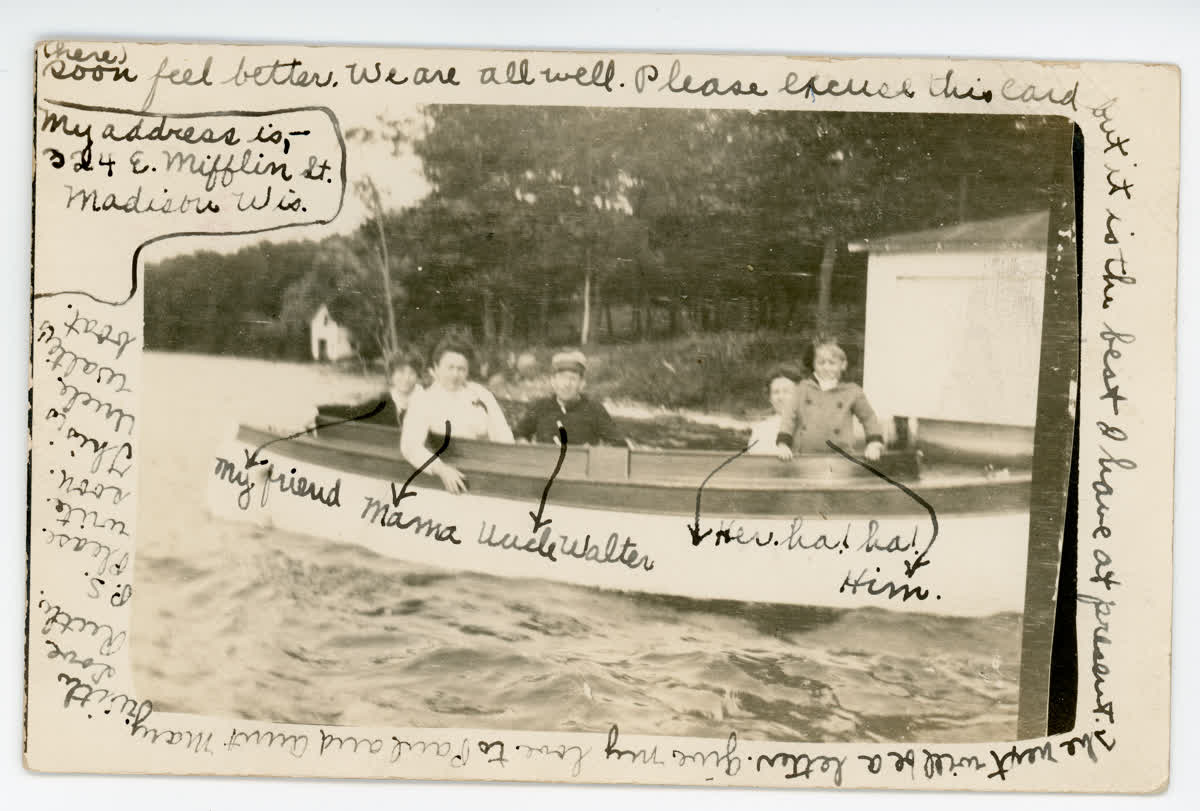 (here)
soon feel better. We are all well. Please excuse this card
but it is the best I have at present.
The next will be a letter. Give my love to Paul and Aunt Mary
With
Love
Ruth.
P.S. Please
write
soon. This is
Uncle
Walter's
boat.
My address is,-
324 E. Mifflin St.
Madison Wis.
My friend
Mama
Uncle Walter
Her. ha! ha!
Him.